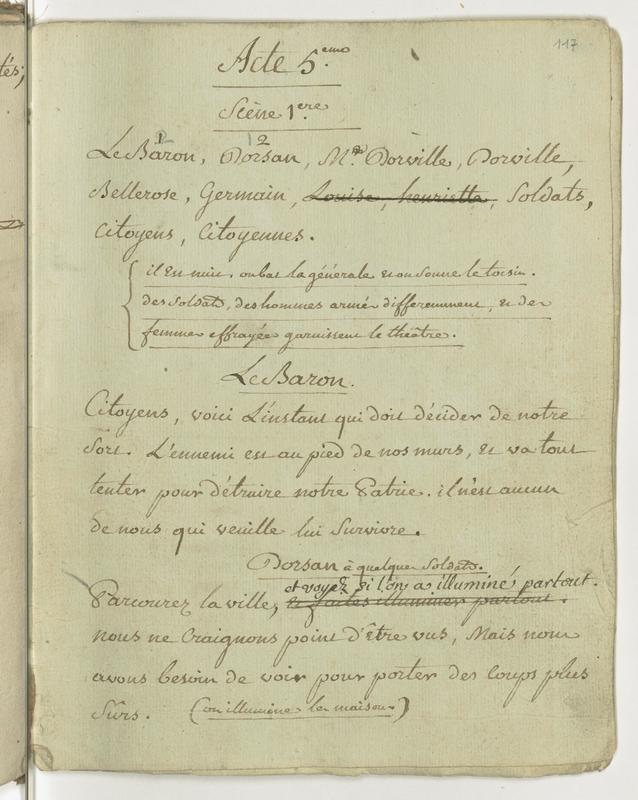 tés;
117
Acte 5.eme
Scène 1.ere
1 2
Le Baron, Dorsan, M.de Dorville, Dorville,
Bellerose, Germain, Louise, henriette, Soldats,
Citoyens, Citoyennes.
il est nuit. on bat la générale et on sonne le tocsin.
des soldats, des hommes armés differemment, et des
femmes effrayées garnissent le théâtre.
Le Baron.
Citoyens, voici L'instant qui doit décider de notre
Sort. L'ennemi est au pied de nos murs, et va tout
tenter pour détruire notre Patrie. il n'est aucun
de nous qui veuille lui Survivre.
Dorsan à quelques Soldats.
et voyez si l'on a illuminé partout.
Parcourez la ville, et faites illuminer partout.
nous ne Craignons point d'être vus, Mais nous
avons besoin de voir pour porter des Coups plus
Sûrs. (on illumine les maisons.)